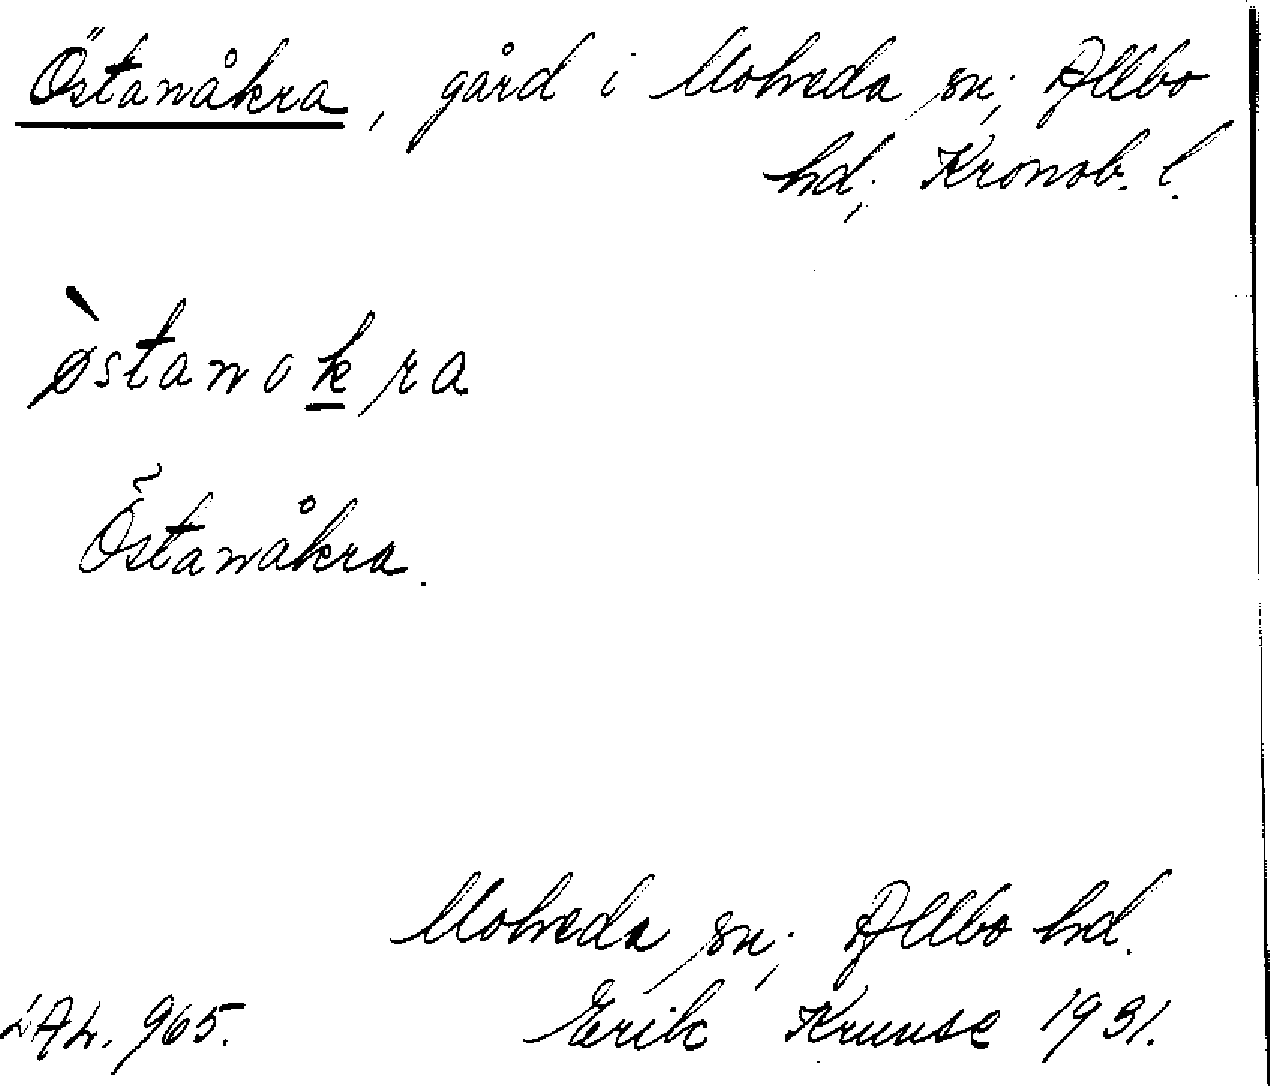 Östanåkra, gård i Moheda sn; Allbo
hd; Kronob. l.
`østanokra
Östanåkra.
Moheda sn; Allbo hd.
LAL. 965. Erik Kruuse 1931.